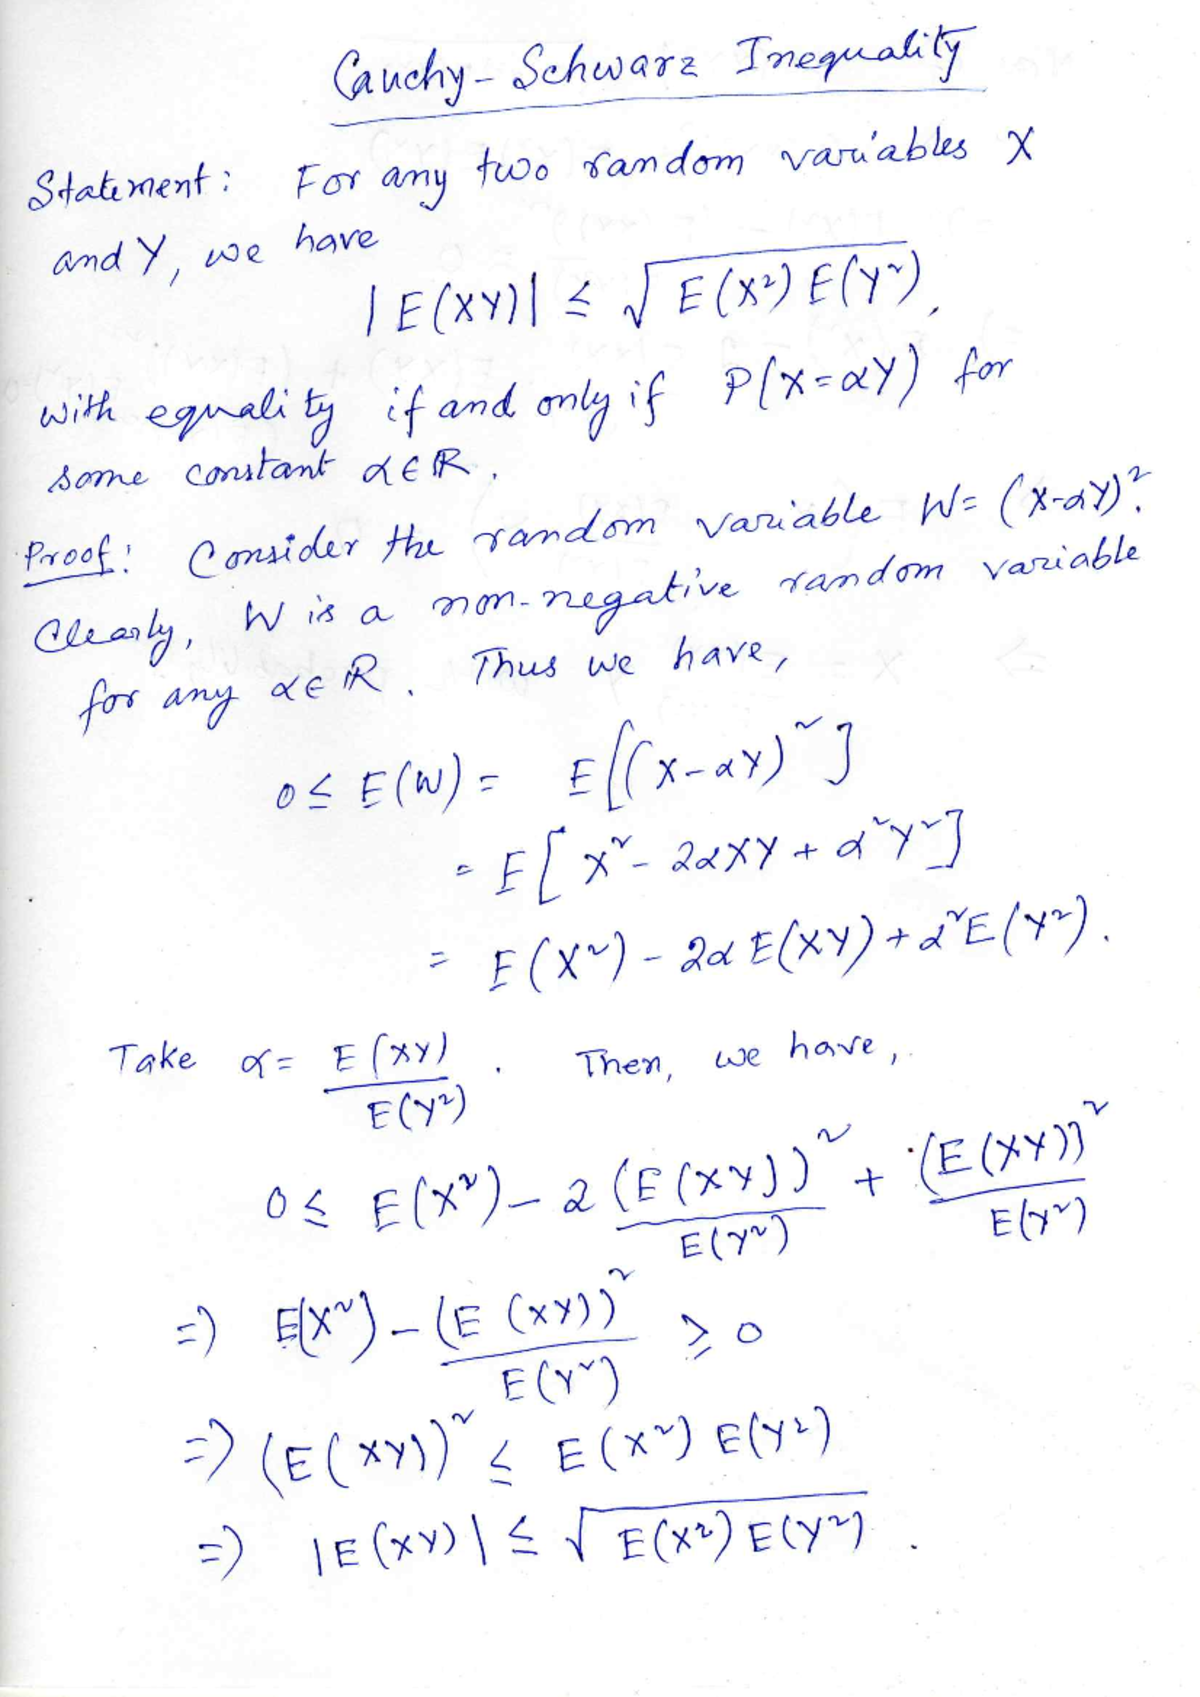 Cauchy-Schwarz Inequality
Statement: For any two random variables X
and Y, we have
|E(XY)| ≤ √E(X²) E(Y²),
with equality if and only if P(X=αY) for
some constant α∈ℝ.
Proof: Consider the random variable W= (X-αY)².
Clearly, W is a non-negative random variable
for any α∈ℝ. Thus we have,
0≤ E(W) = E[(X-αY)²]
= E[X²- 2αXY + α²Y²]
= E(X²) - 2α E(XY) + α²E(Y²).
Take α = E(XY)/E(Y²). Then, we have,
0≤ E(X²) - 2 (E(XY))²/E(Y²) + (E(XY))²/E(Y²)
⇒ E(X²) - (E(XY))²/E(Y²) ≥ 0
⇒ (E(XY))² ≤ E(X²) E(Y²)
⇒ |E(XY)| ≤ √E(X²) E(Y²).